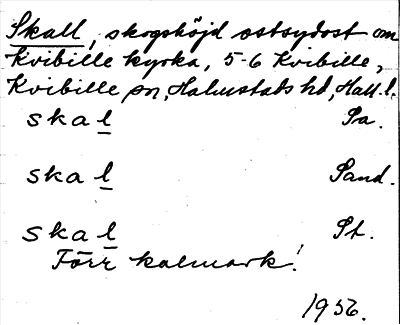 Skall, skogshöjd ostsydost om
Kvibille kyrka, 5-6 Kvibille,
Kvibille sn, Halmstads hd, Hall. l.
skal Pa.
skal Sand.
skal St.
Förr kalmark!
1956.